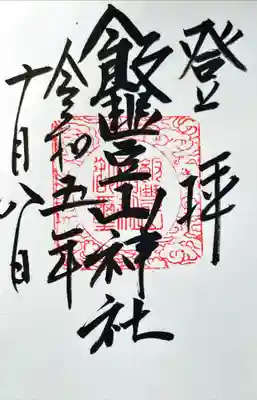 登拝
飯豊山神社
令和五年
十月八日